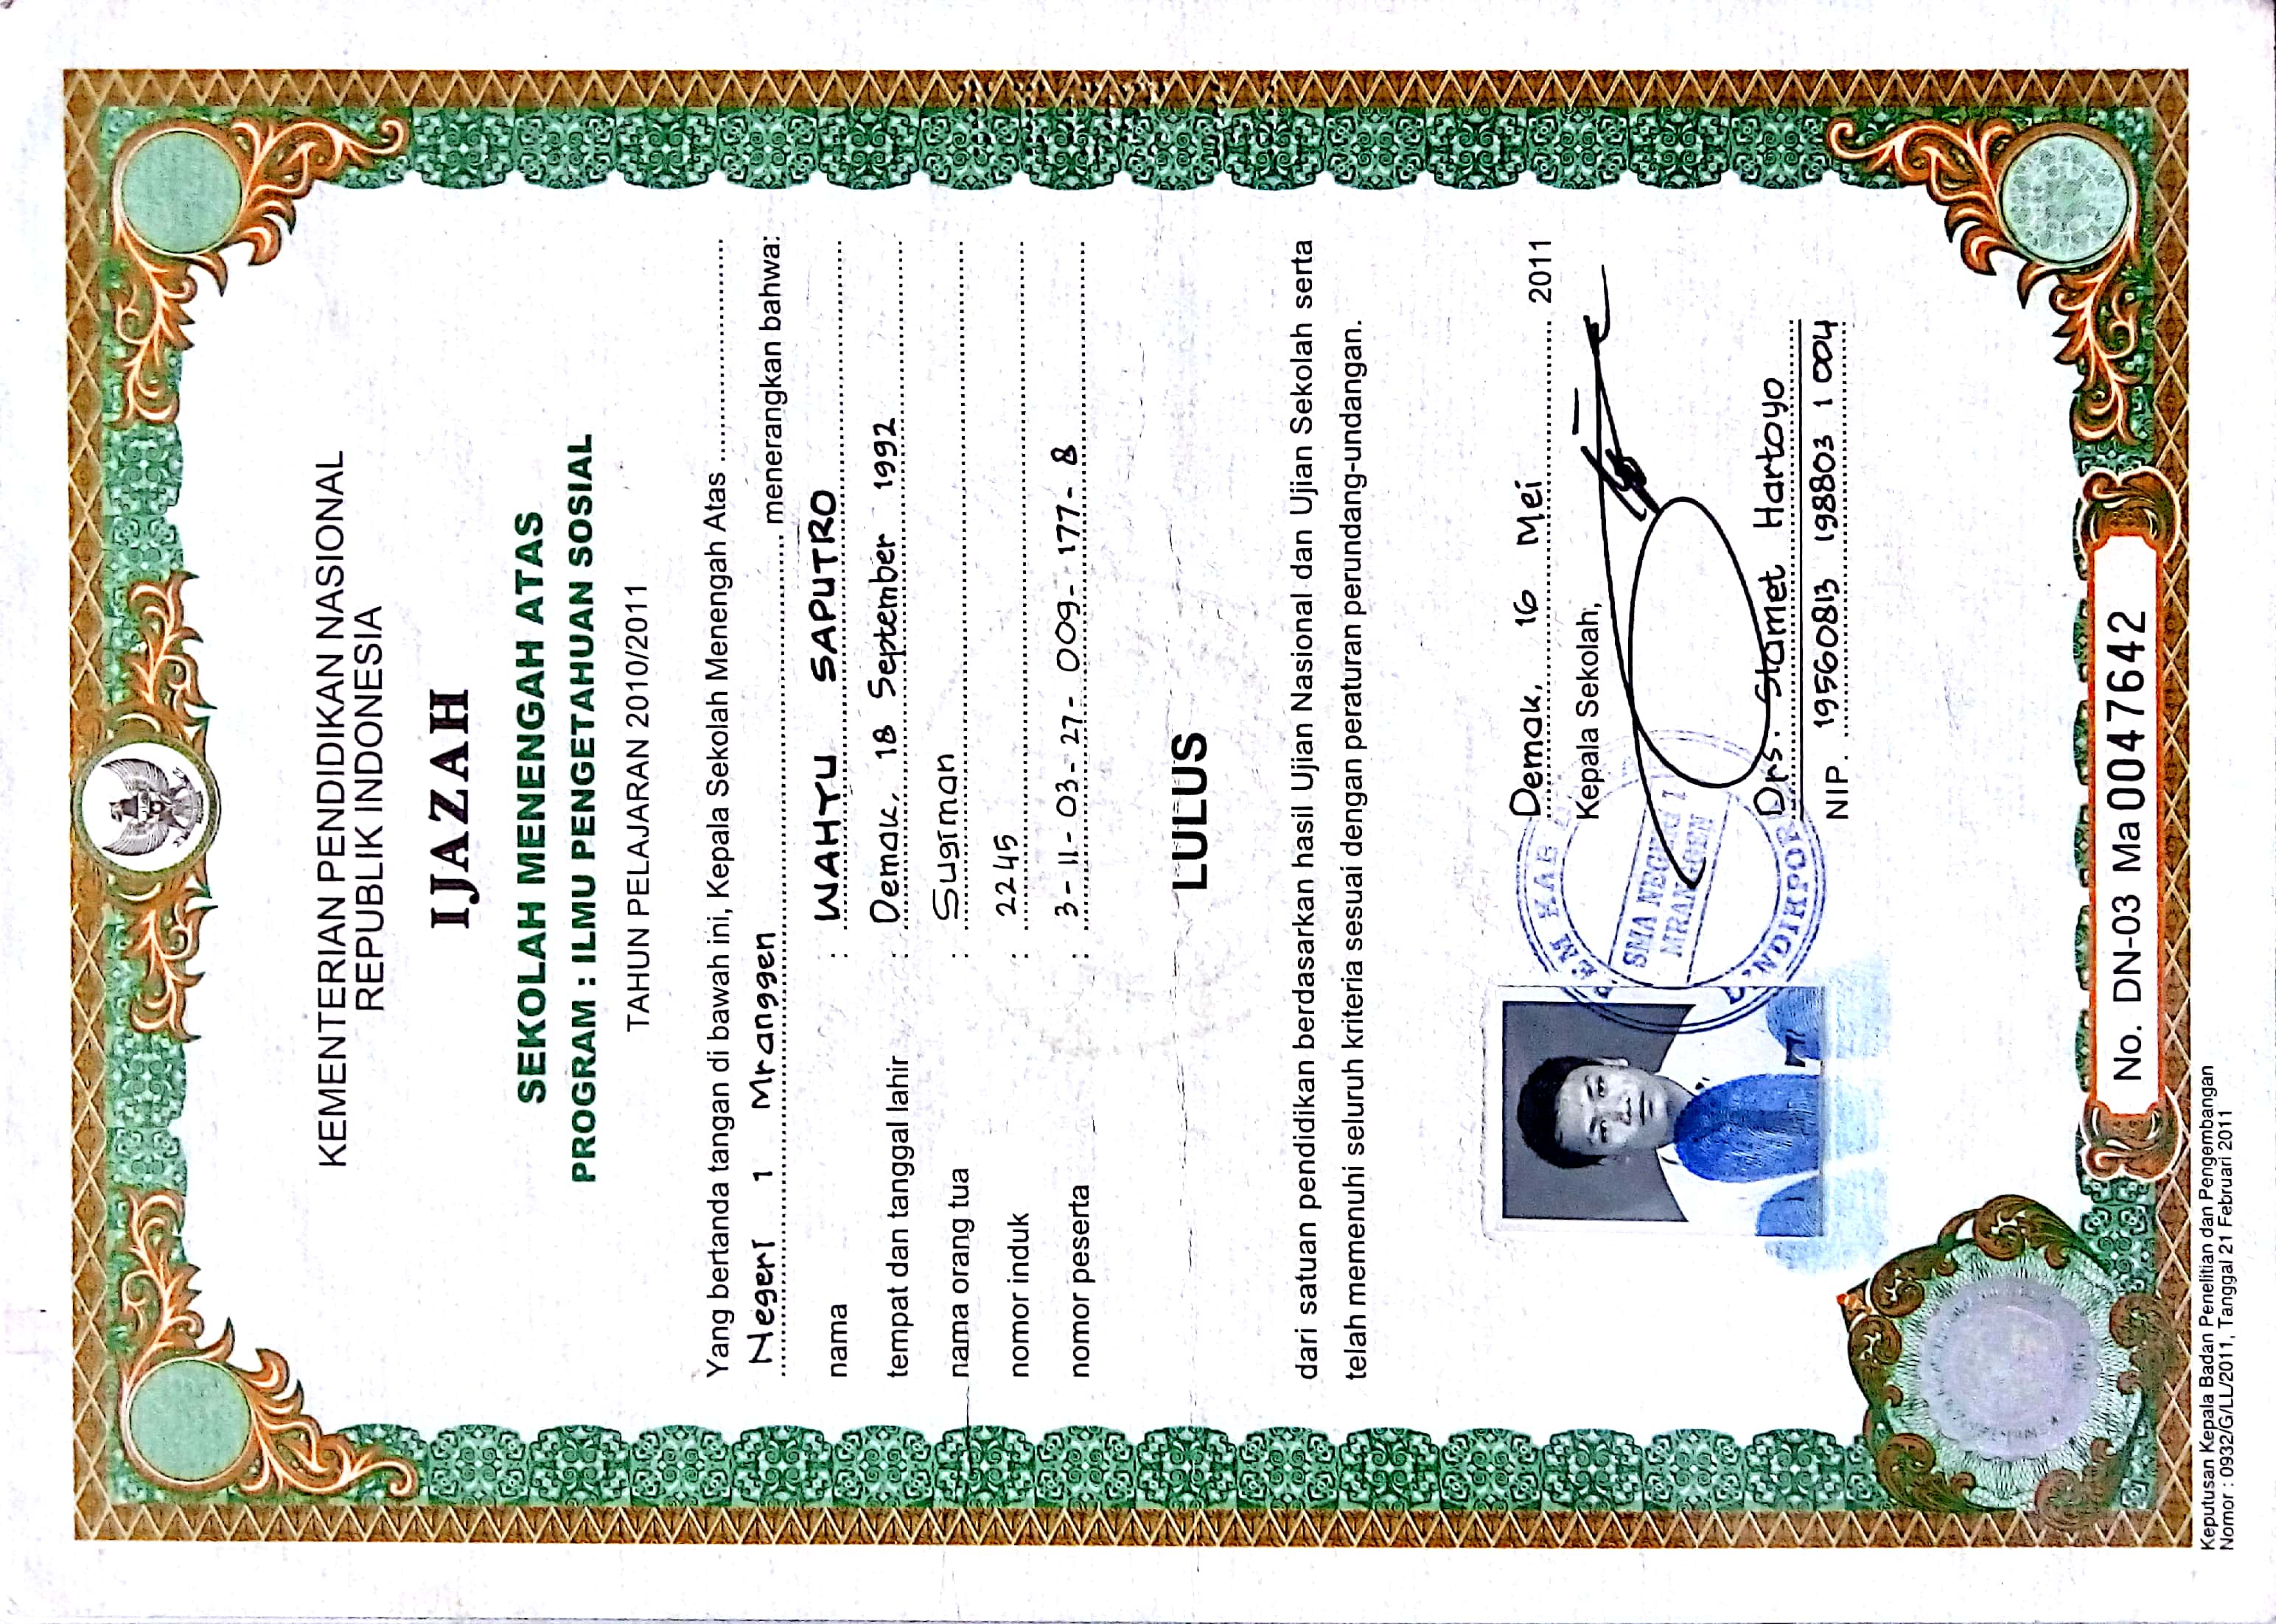 KEMENTERIAN PENDIDIKAN NASIONAL
REPUBLIK INDONESIA
IJAZAH
SEKOLAH MENENGAH ATAS
PROGRAM : ILMU PENGETAHUAN SOSIAL
TAHUN PELAJARAN 2010/2011
Yang bertanda tangan di bawah ini, Kepala Sekolah Menengah Atas
Negeri 1 Mranggen menerangkan bahwa:
nama : WAHYU SAPUTRO
tempat dan tanggal lahir : Demak, 18 September 1992
nama orang tua : Sugiman
nomor induk : 2245
nomor peserta : 3-11-03-27-009-177-8
LULUS
dari satuan pendidikan berdasarkan hasil Ujian Nasional dan Ujian Sekolah serta
telah memenuhi seluruh kriteria sesuai dengan peraturan perundang-undangan.
Demak, 16 Mei 2011
Kepala Sekolah,
SMA NEGERI 1
MRANGGEN
Drs. Slamet Hartoyo
NIP. 19560813 198803 1 004
No. DN-03 Ma 0047642
Keputusan Kepala Badan Penelitian dan Pengembangan
Nomor : 0932/G/LL/2011, Tanggal 21 Februari 2011